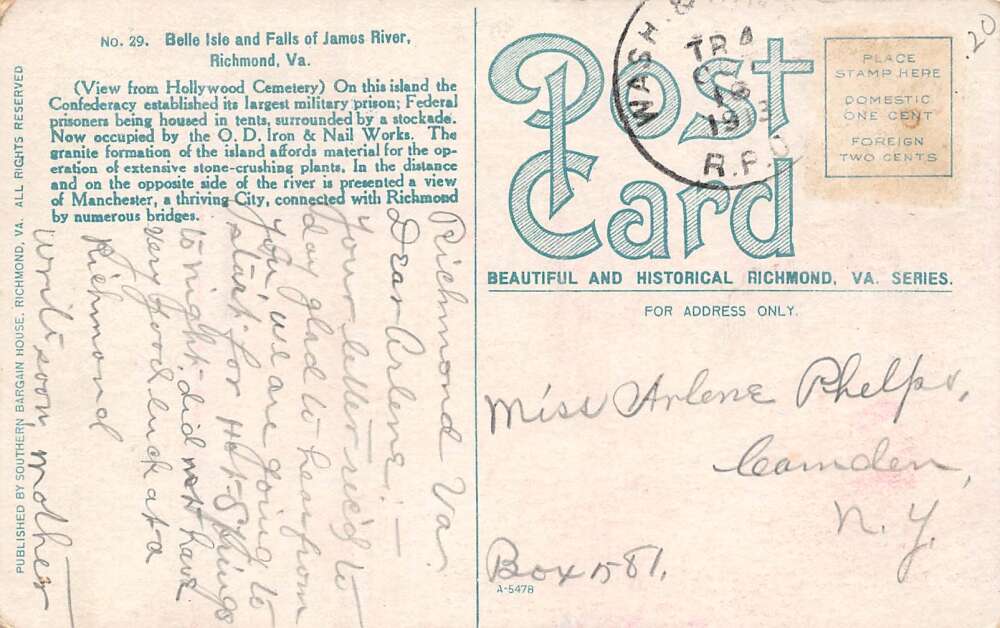 No. 29. Belle Isle and Falls of James River,
Richmond, Va.
(View from Hollywood Cemetery) On this island the
Confederacy established its largest military prison; Federal
prisoners being housed in tents, surrounded by a stockade.
Now occupied by the O. D. Iron & Nail Works. The
granite formation of the island affords material for the op-
eration of extensive stone-crushing plants. In the distance
and on the opposite side of the river is presented a view
of Manchester, a thriving City, connected with Richmond
by numerous bridges.
PUBLISHED BY SOUTHERN BARGAIN HOUSE, RICHMOND, VA. ALL RIGHTS RESERVED
Richmond Va.
Dear Arlene:—
Your letter rec'd to
day glad to hear from
you we are going to
start for Hot-Springs
to night did not have
very good luck at a
Richmond
Write soon, mother
Post
Card
BEAUTIFUL AND HISTORICAL RICHMOND, VA. SERIES.
FOR ADDRESS ONLY.
WASH. &
TR 4
1913
R.P.O
PLACE
STAMP HERE
DOMESTIC
ONE CENT
FOREIGN
TWO CENTS
.20
Miss Arlene Phelps,
Camden,
N. Y.
Box 1581.
A-5478